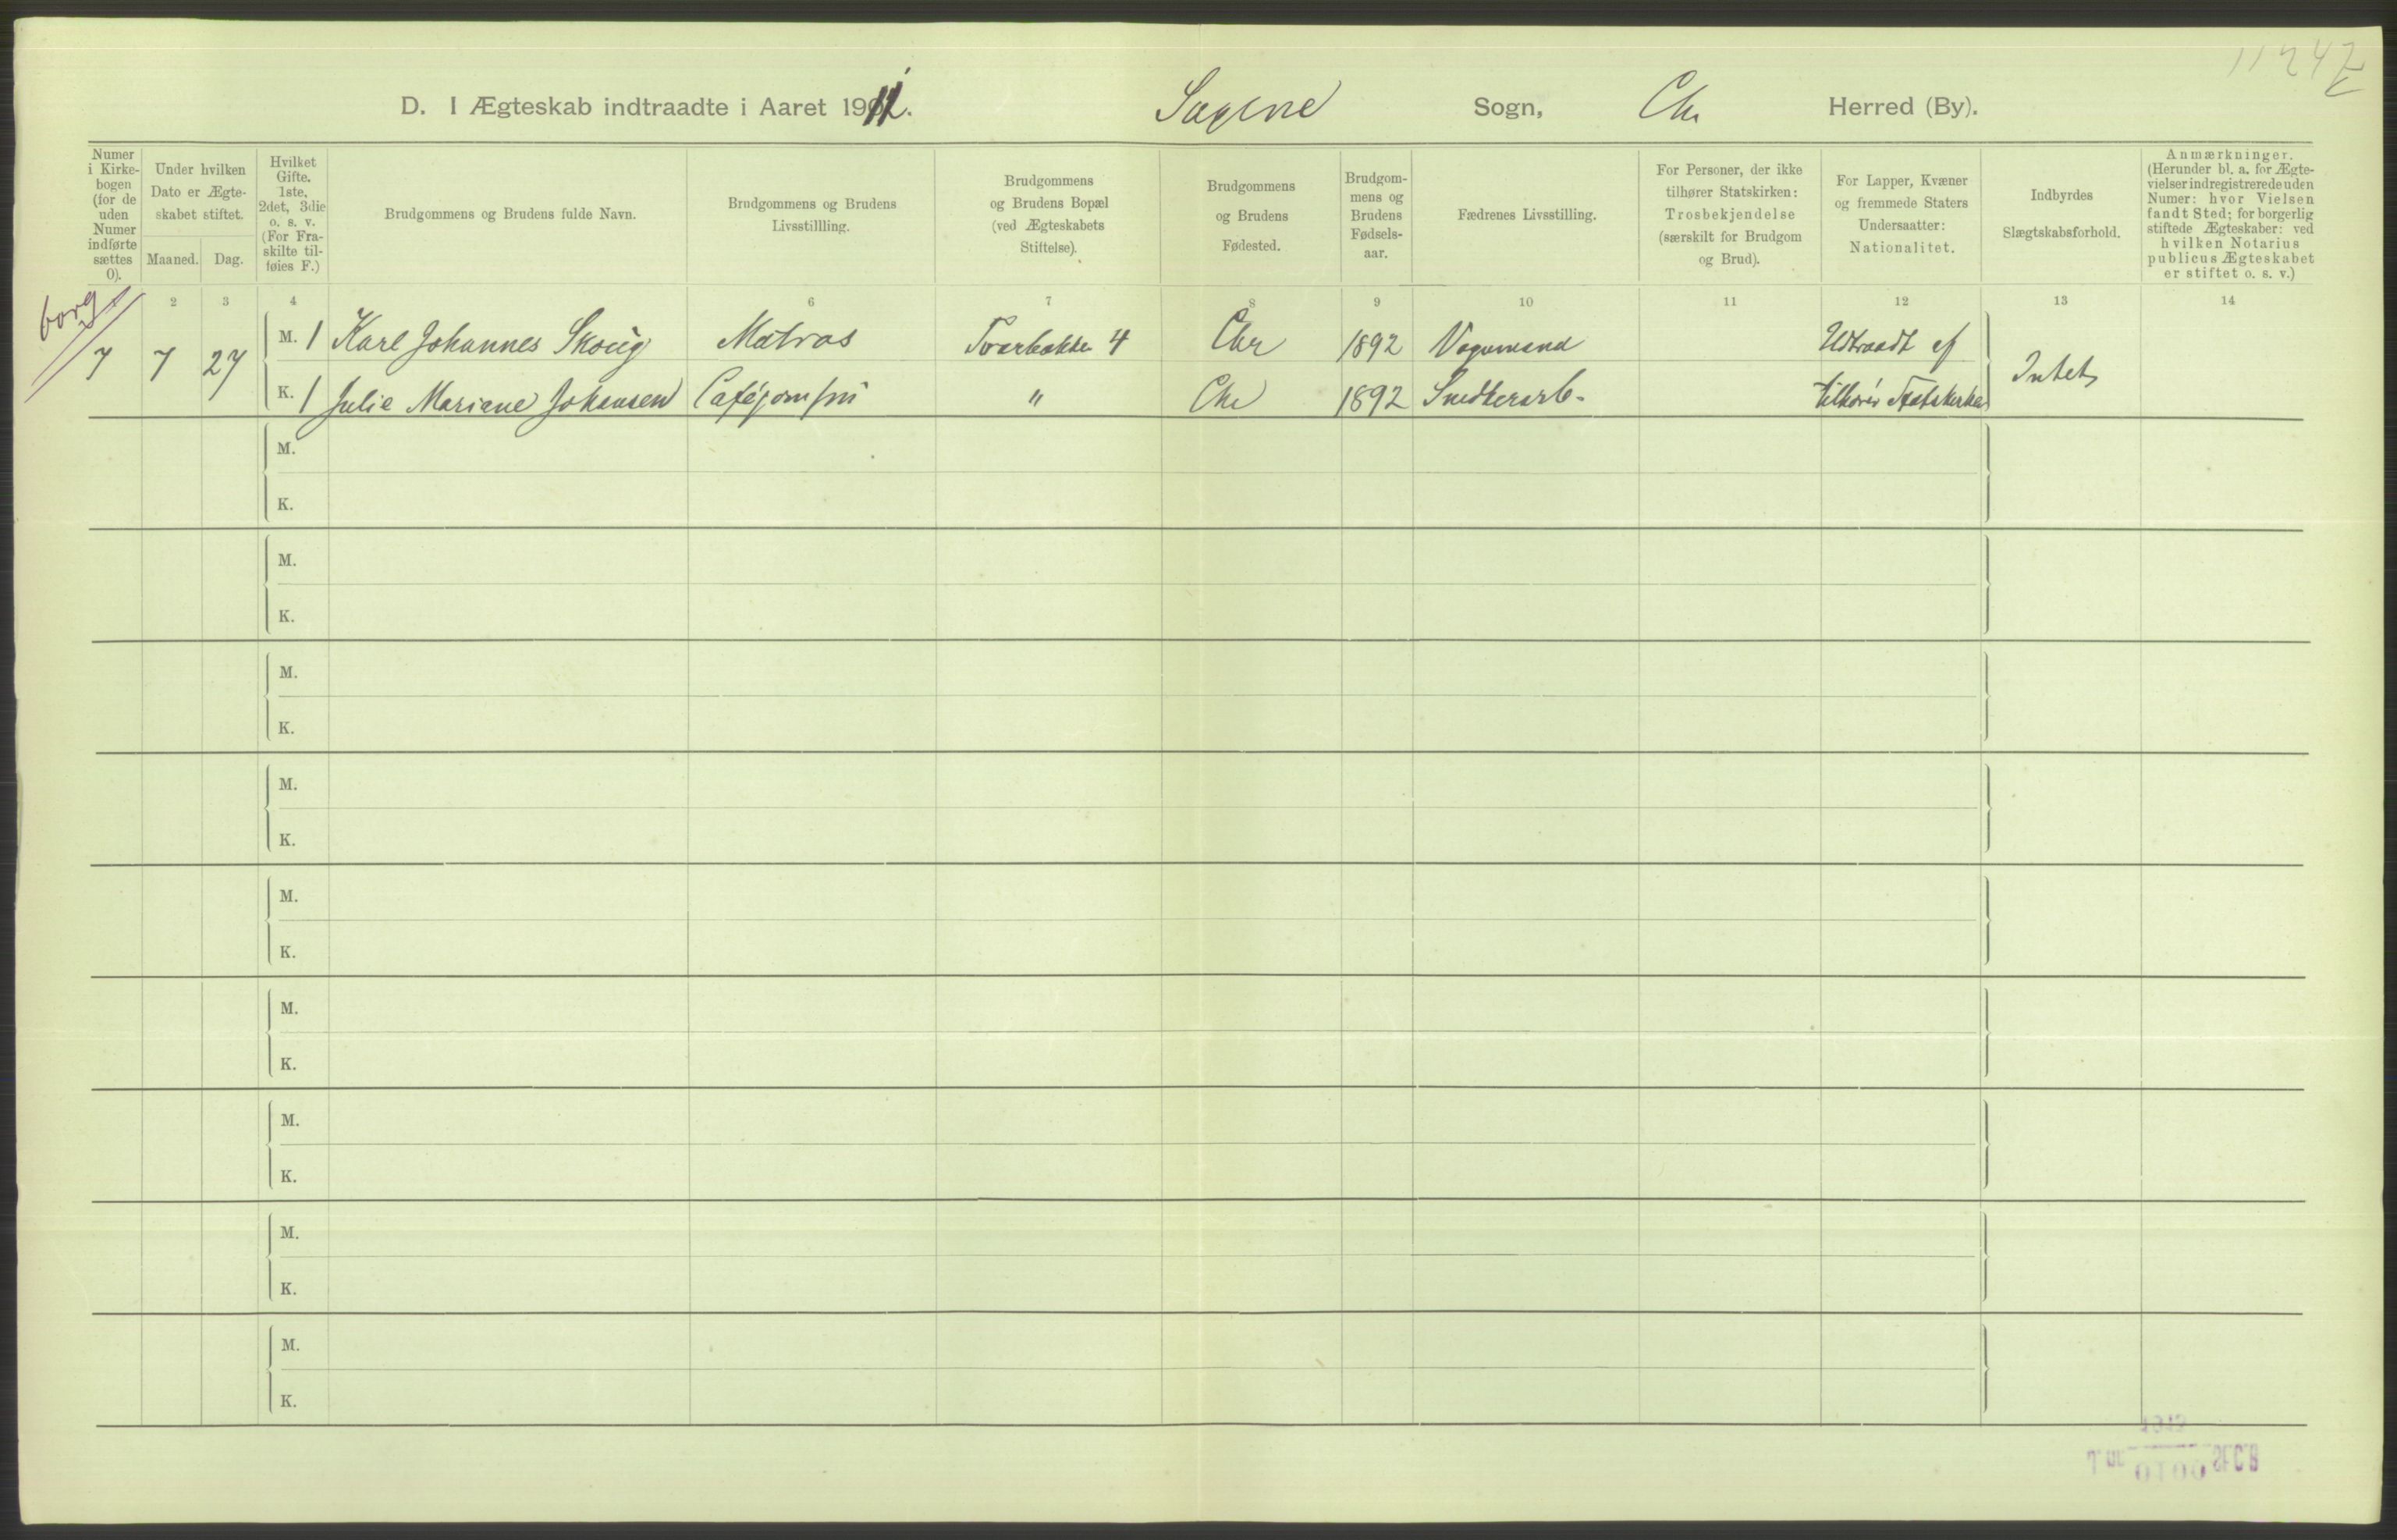 11247
D. I Ægteskab indtraadte i Aaret 1911. Sagene Sogn, Chr Herred (By).
Numer
i Kirke-
bogen
(for de
uden
Numer
indførte
sættes
0).
Under hvilken
Dato er Ægte-
skabet stiftet.
Maaned. Dag.
Hvilket
Gifte.
1ste,
2det, 3die
o. s. v.
(For Fra-
skilte til-
føies F.)
Brudgommens og Brudens fulde Navn.
Brudgommens og Brudens
Livsstillling.
Brudgommens
og Brudens Bopæl
(ved Ægteskabets
Stiftelse).
Brudgommens
og Brudens
Fødested.
Brudgom-
mens og
Brudens
Fødsels-
aar.
Fædrenes Livsstilling.
For Personer, der ikke
tilhører Statskirken:
Trosbekjendelse
(særskilt for Brudgom
og Brud).
For Lapper, Kvæner
og fremmede Staters
Undersaatter:
Nationalitet.
Indbyrdes
Slægtskabsforhold.
Anmærkninger.
(Herunder bl. a. for Ægte-
vielser indregistrerede uden
Numer: hvor Vielsen
fandt Sted; for borgerlig
stiftede Ægteskaber: ved
hvilken Notarius
publicus Ægteskabet
er stiftet o. s. v.)
2 3 4 6 7 8 9 10 11 12 13 14
borg
7 7 27
M. 1 Karl Johannes Skoug Matros Tværbakken 4 Chr 1892 Vognmand Udtraadt af
Intet
K. 1 Julie Mariane Johansen Caféjomfru " Chr 1892 Snedkerarb. tilhører Statskirken
M.
K.
M.
K.
M.
K.
M.
K.
M.
K.
M.
K.
M.
K.
M.
K.
M.
K.